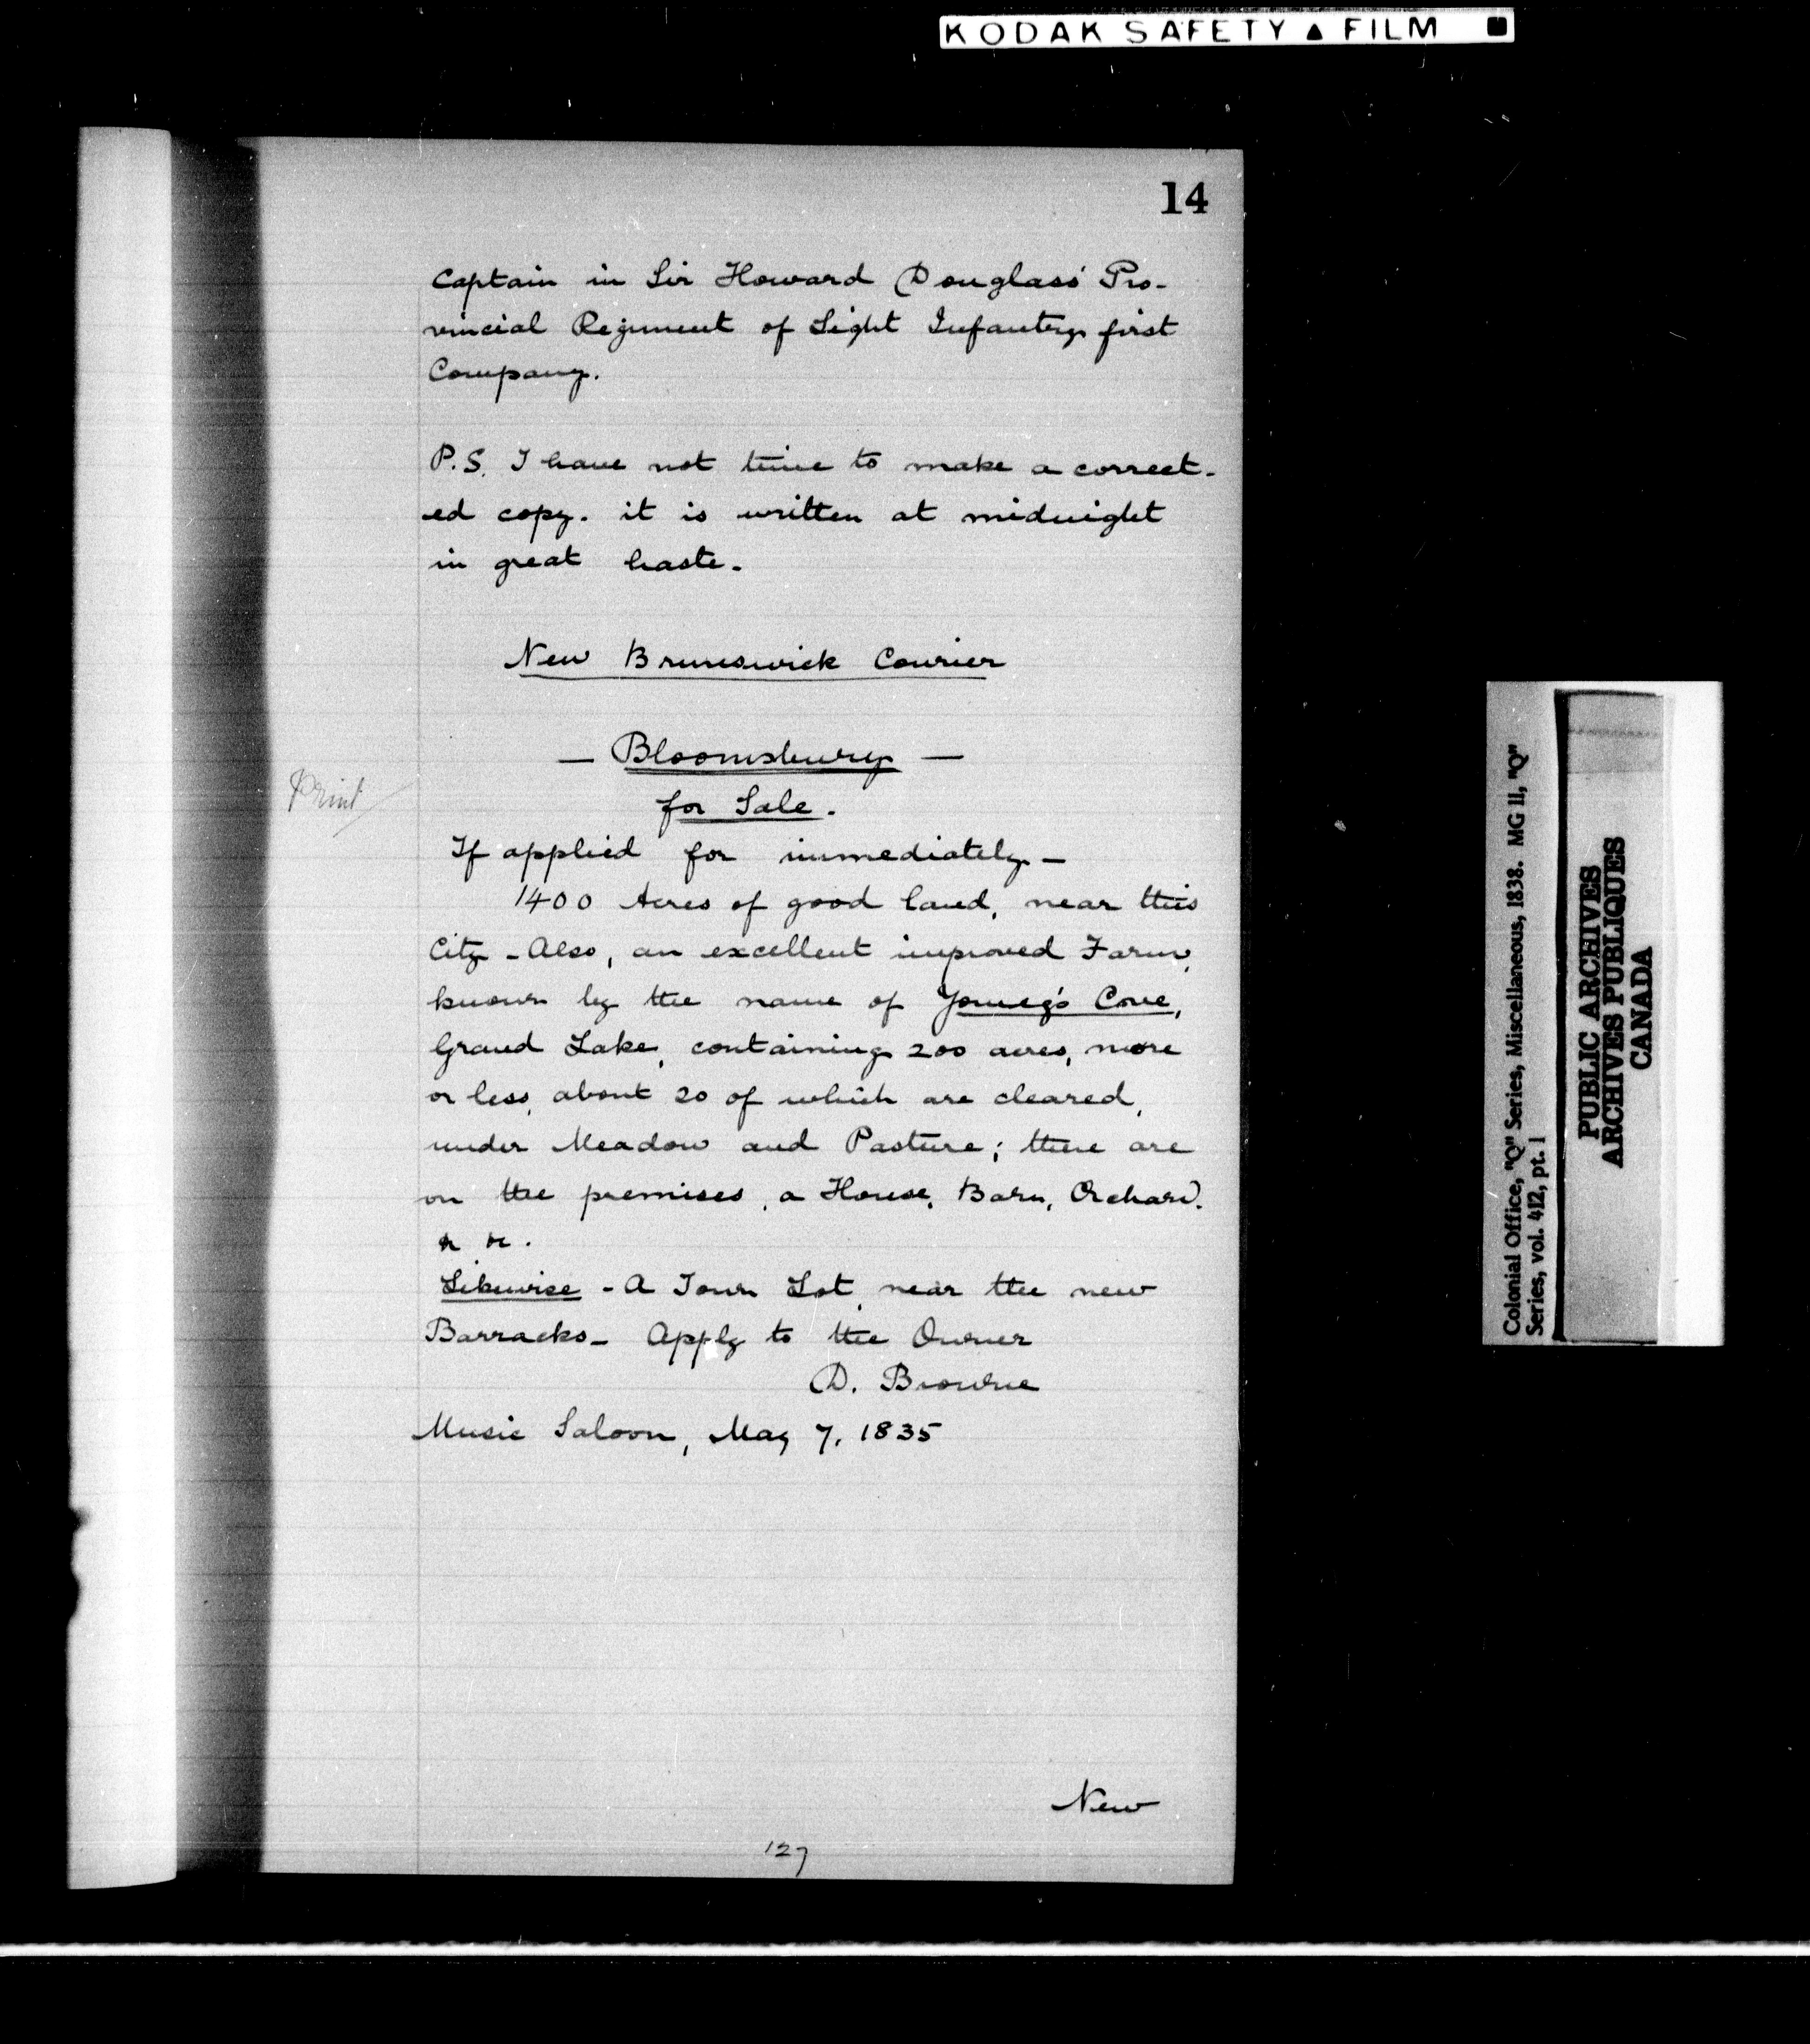 KODAK SAFETY ▲ FILM ■
14
Captain in Sir Howard Douglass' Pro-
vincial Regiment of Light Infantry first
Company.
P.S. I have not time to make a correct-
ed copy. it is written at midnight
in great haste.
New Brunswick Courier
— Bloomsbury —
Print
for Sale.
If applied for immediately —
1400 Acres of good land, near this
City - Also, an excellent improved Farm,
known by the name of Young's Cove,
Grand Lake, containing 200 acres, more
or less, about 20 of which are cleared,
under Meadow and Pasture; there are
on the premises, a House, Barn, Orchard.
&c &c.
Likewise - A Town Lot, near the new
Barracks - Apply to the Owner
D. Browne
Music Saloon, May 7, 1835
New
127
Colonial Office, "Q" Series, Miscellaneous, 1838. MG 11, "Q"
Series, vol. 412, pt. 1
PUBLIC ARCHIVES
ARCHIVES PUBLIQUES
CANADA